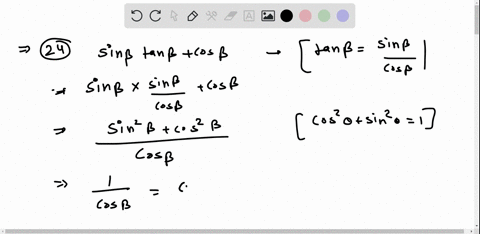 ⇒ (24) sinβ tanβ + cosβ → [tanβ = sinβ/cosβ]
⇒ sinβ × sinβ/cosβ + cosβ
⇒ (sin²β + cos²β)/cosβ [cos²θ + sin²θ = 1]
⇒ 1/cosβ =